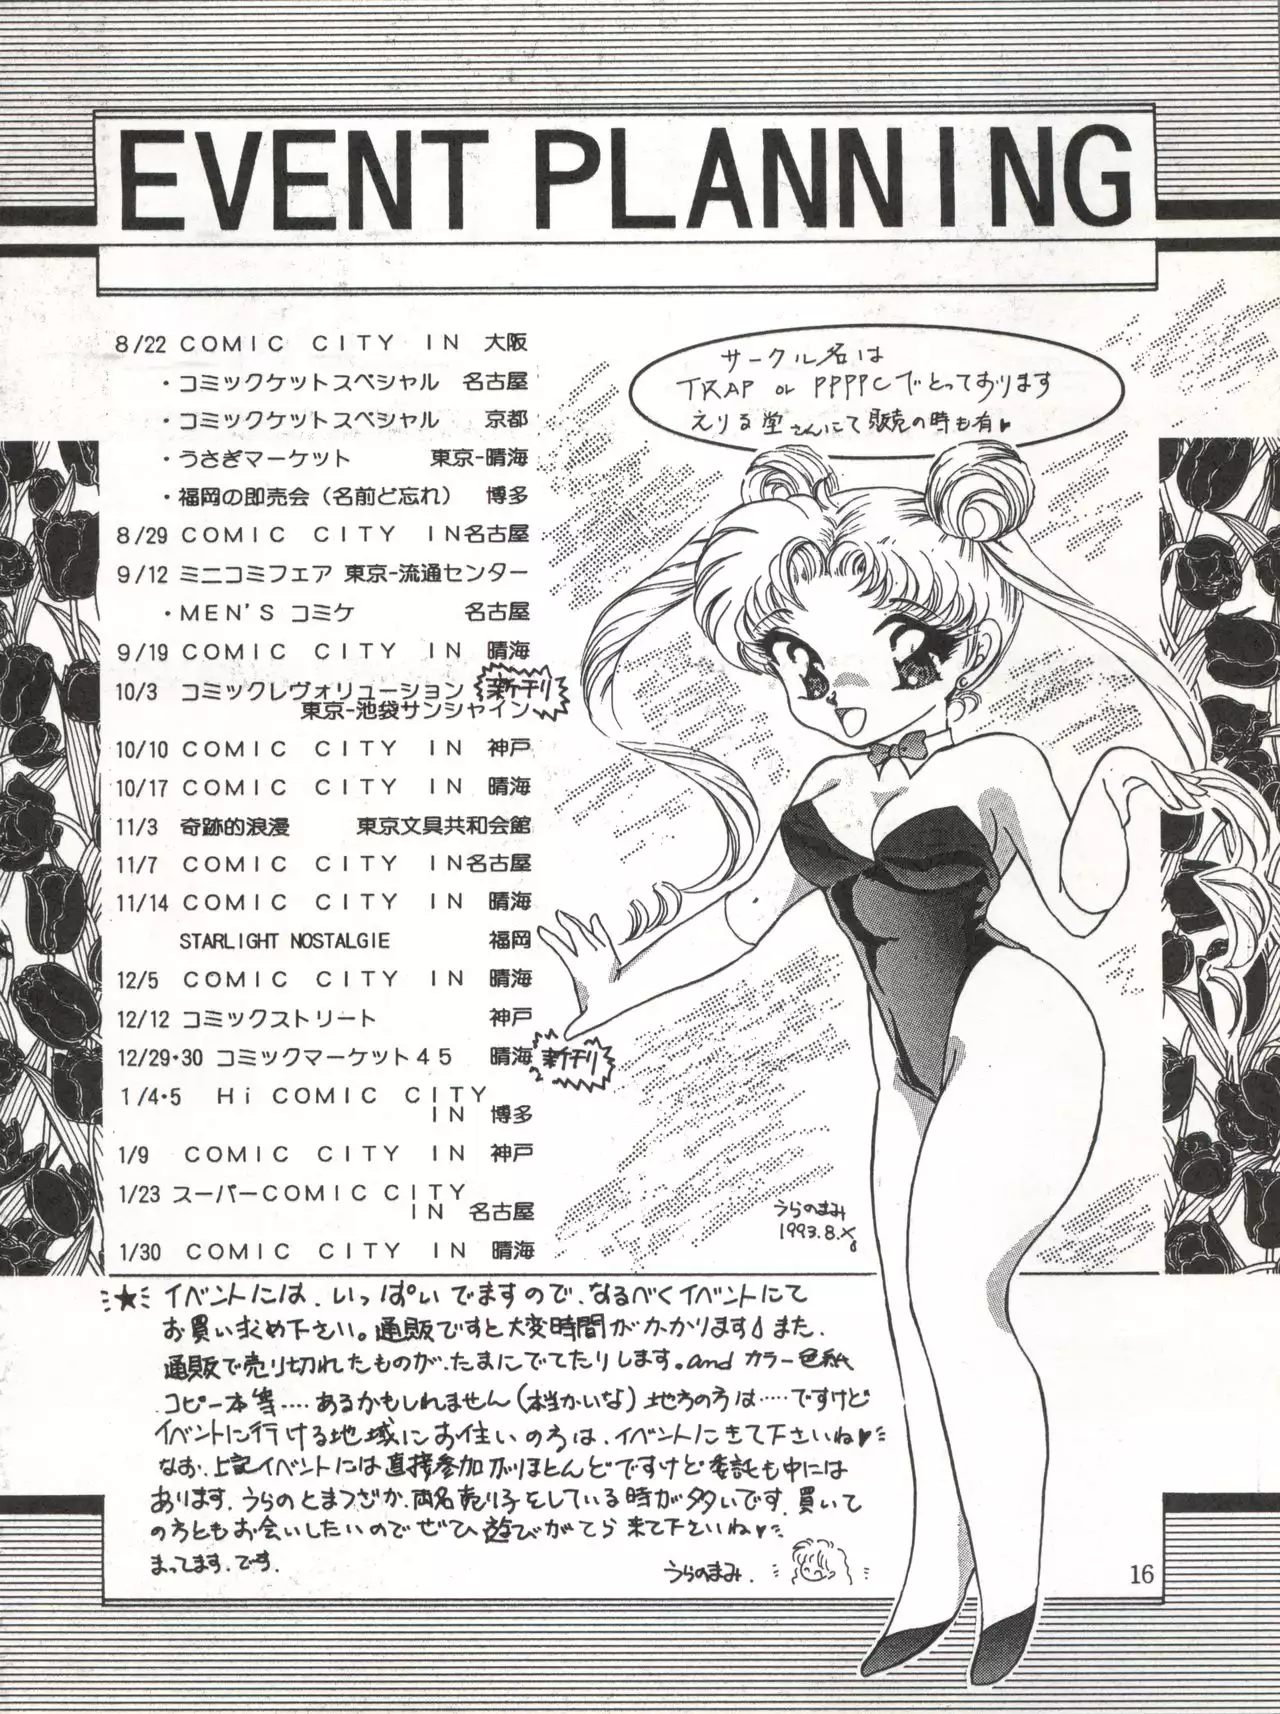 EVENT PLANNING
8/22 COMIC CITY IN 大阪
・コミックケットスペシャル 名古屋
・コミックケットスペシャル 京都
・うさぎマーケット 東京-晴海
・福岡の即売会（名前ど忘れ） 博多
8/29 COMIC CITY IN名古屋
9/12 ミニコミフェア 東京-流通センター
・MEN'S コミケ 名古屋
9/19 COMIC CITY IN 晴海
10/3 コミックレヴォリューション 新刊
東京-池袋サンシャイン
10/10 COMIC CITY IN 神戸
10/17 COMIC CITY IN 晴海
11/3 奇跡的浪漫 東京文具共和会館
11/7 COMIC CITY IN名古屋
11/14 COMIC CITY IN 晴海
STARLIGHT NOSTALGIE 福岡
12/5 COMIC CITY IN 晴海
12/12 コミックストリート 神戸
12/29・30 コミックマーケット45 晴海 新刊
1/4・5 Hi COMIC CITY
IN 博多
1/9 COMIC CITY IN 神戸
1/23 スーパーCOMIC CITY
IN 名古屋
1/30 COMIC CITY IN 晴海
サークル名は
TRAP or PPPPCでとっております
えりる堂さんにて販売の時も有♥
うらのまみ
1993.8.
★イベントには、いっぱいでますので、なるべくイベントにて
お買い求め下さい。通販ですと大変時間がかかります♪また、
通販で売り切れたものが、たまにでてたりします。and カラー色紙
コピー本等……あるかもしれません(本当かいな)地方の方は……ですけど
イベントに行ける地域にお住いの方は、イベントにきて下さいね♥
なお、上記イベントには直接参加がほとんどですけど委託も中には
あります。うらのとまつざか、両名売り子をしている時が多いです。買いて
の方ともお会いしたいのでぜひ遊びがてら来て下さいね♥
まってます。です。
うらのまみ.
16